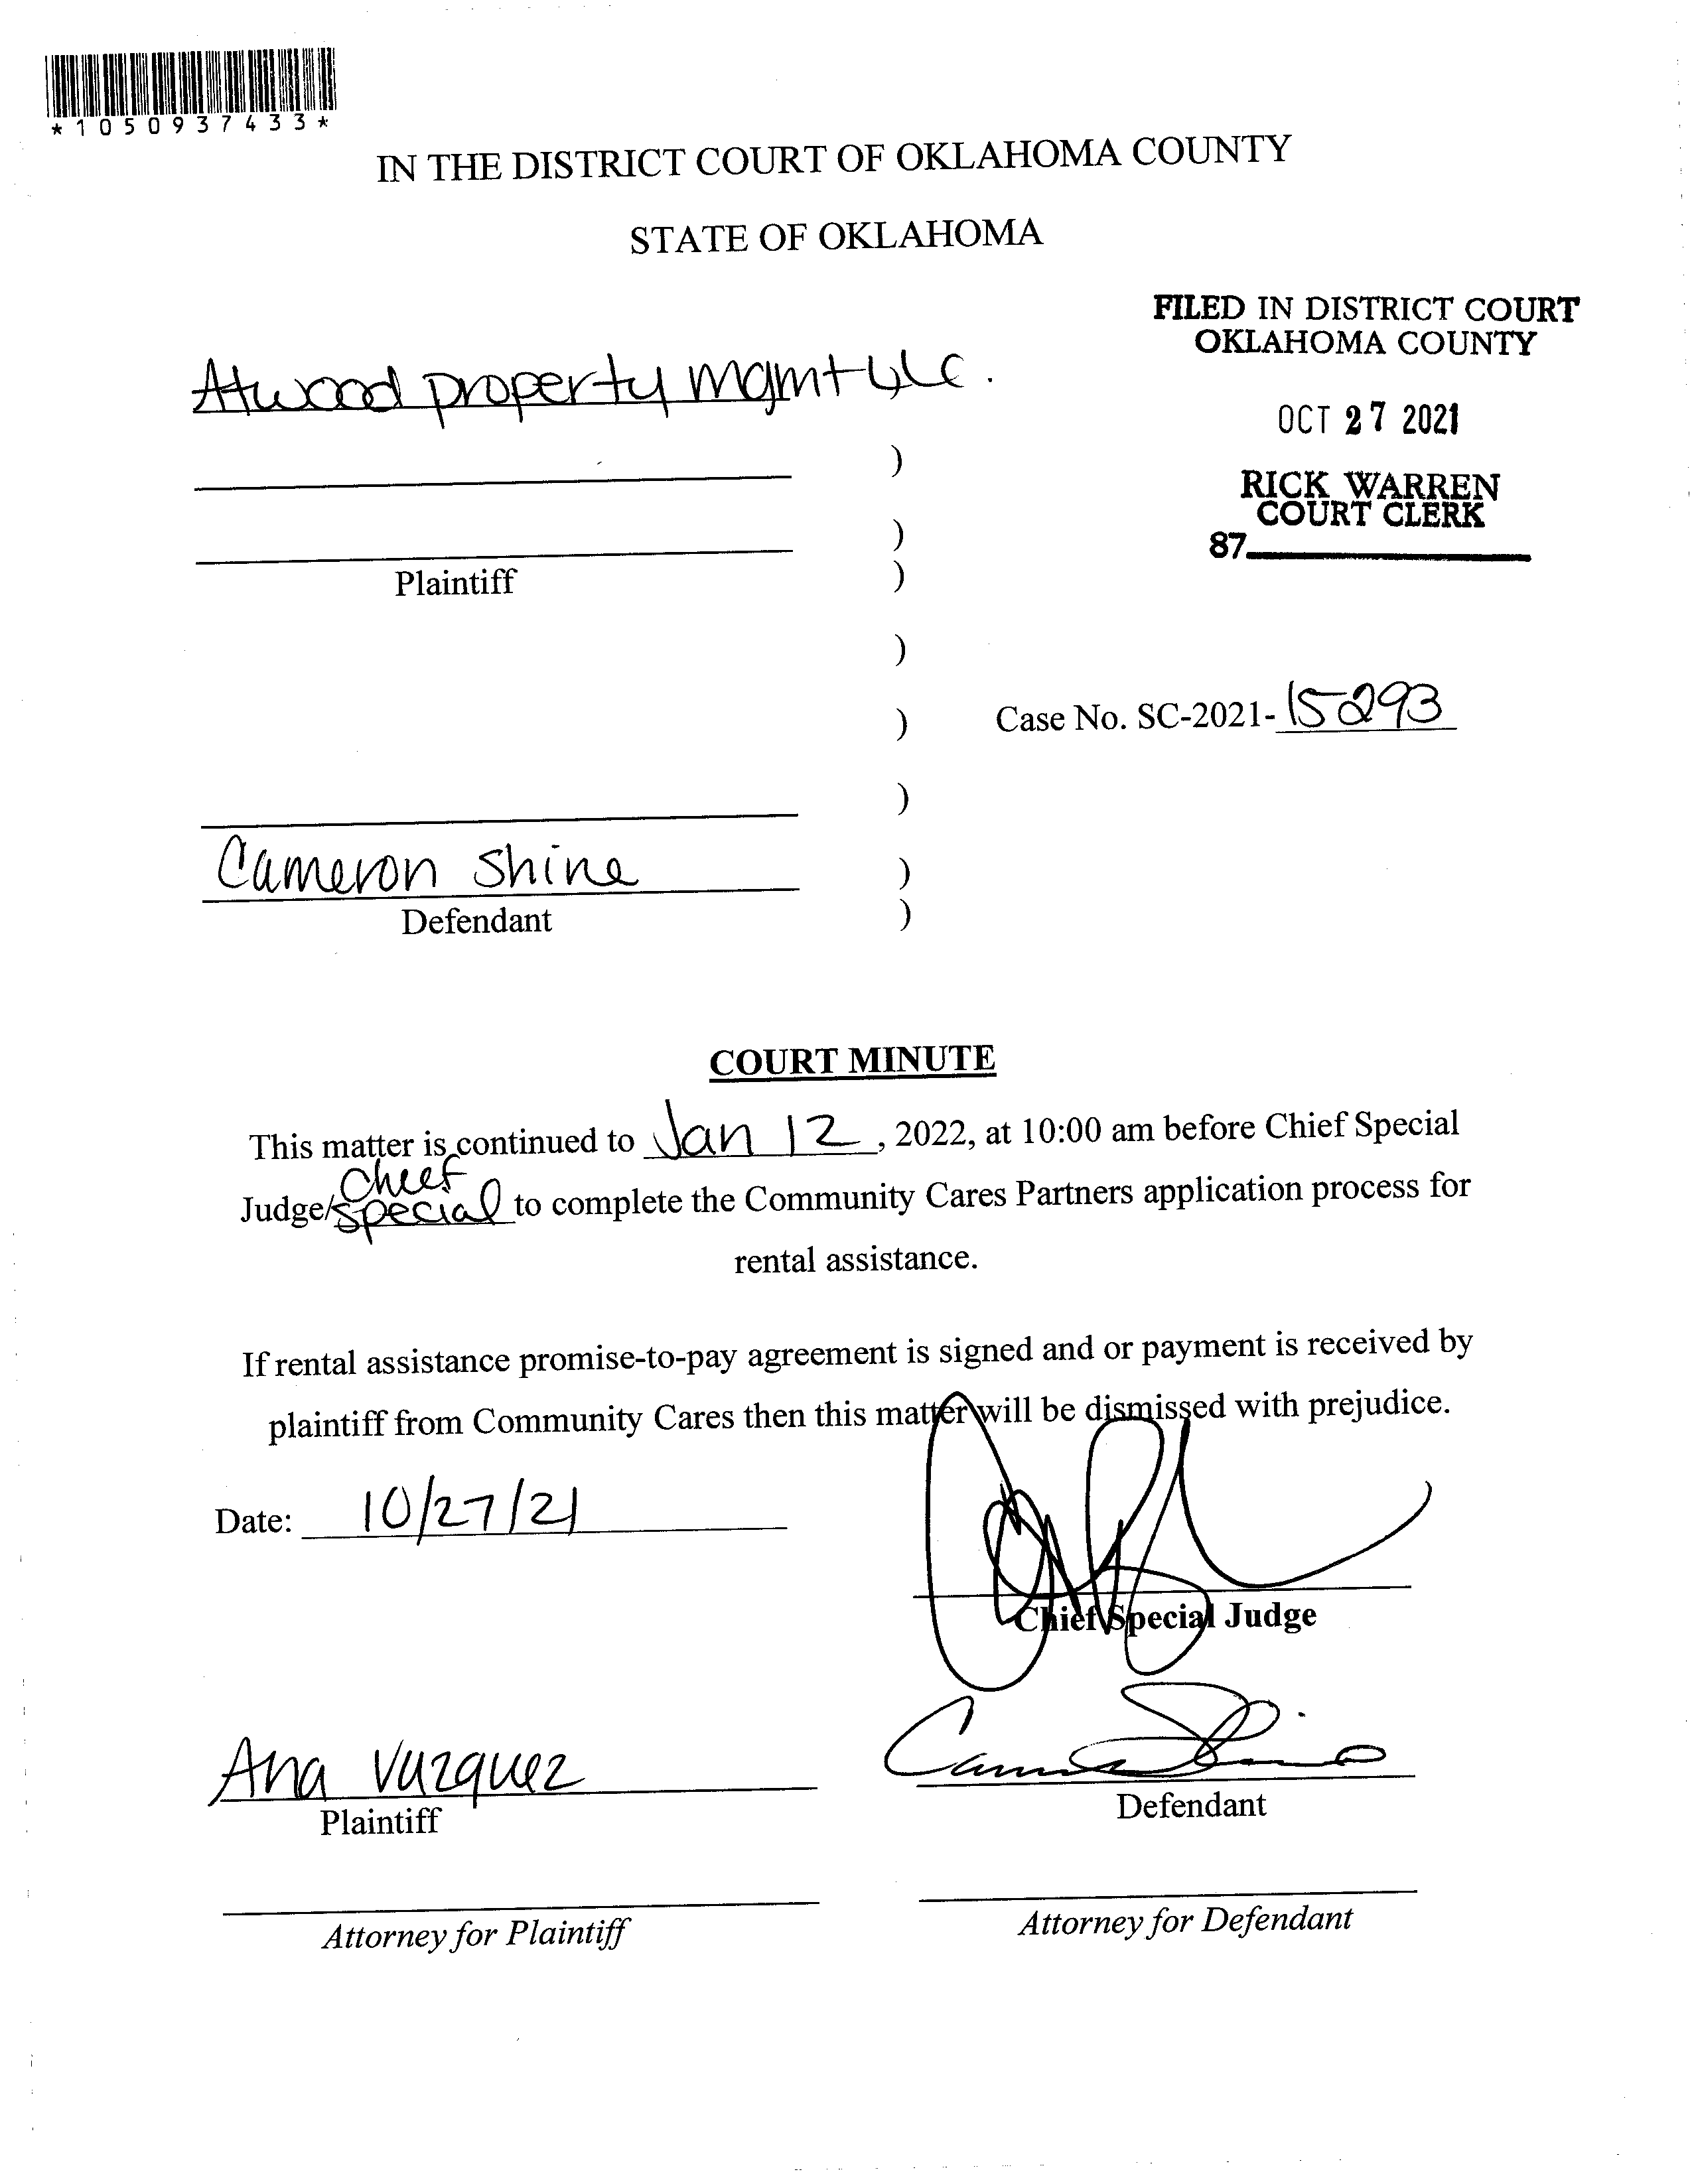 *1050937433*
IN THE DISTRICT COURT OF OKLAHOMA COUNTY
STATE OF OKLAHOMA
FILED IN DISTRICT COURT
OKLAHOMA COUNTY
OCT 27 2021
RICK WARREN
COURT CLERK
87
Atwood property mgmt LLC.
)
)
Plaintiff )
)
) Case No. SC-2021- 15293
)
Cameron Shine )
Defendant )
COURT MINUTE
This matter is continued to Jan 12, 2022, at 10:00 am before Chief Special
Chief
Judge/special to complete the Community Cares Partners application process for
rental assistance.
If rental assistance promise-to-pay agreement is signed and or payment is received by
plaintiff from Community Cares then this matter will be dismissed with prejudice.
Date: 10/27/21
Chief Special Judge
Ana Vazquez
Plaintiff
Defendant
Attorney for Plaintiff
Attorney for Defendant